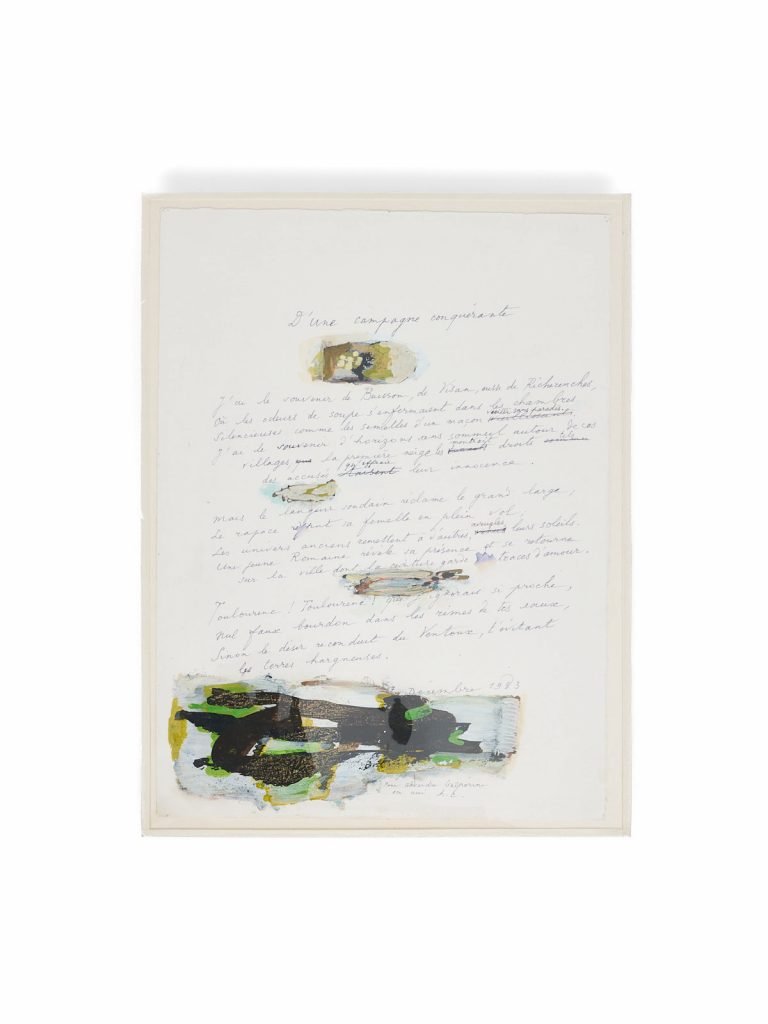 D'une campagne conquérante
J'ai le souvenir de Buisson, de Visan, aussi de Richerenches,
Où les odeurs de soupe s'enfermaient dans les chambres
Silencieuses comme les semelles d'un maçon
sans paradis.
J'ai le souvenir d'horizons sans sommeil autour de ces
villages, la première neige les droite
des accusés leur innocence.
Mais le langeur soudain réclame le grand large,
Le rapace rejoint sa femelle en plein vol;
Les univers anciens remettent à d'autres, aveugles leurs soleils.
Une jeune Romaine révèle sa présence et se retourne
sur la ville dont la ceinture garde traces d'amour.
Toulourenc! Toulourenc! que j'ignorais si proche,
Nul faux bourdon dans les rimes de tes eaux,
Sinon le désir reconduit du Ventoux, t'évitant
les terres hargneuses.
Décembre 1983